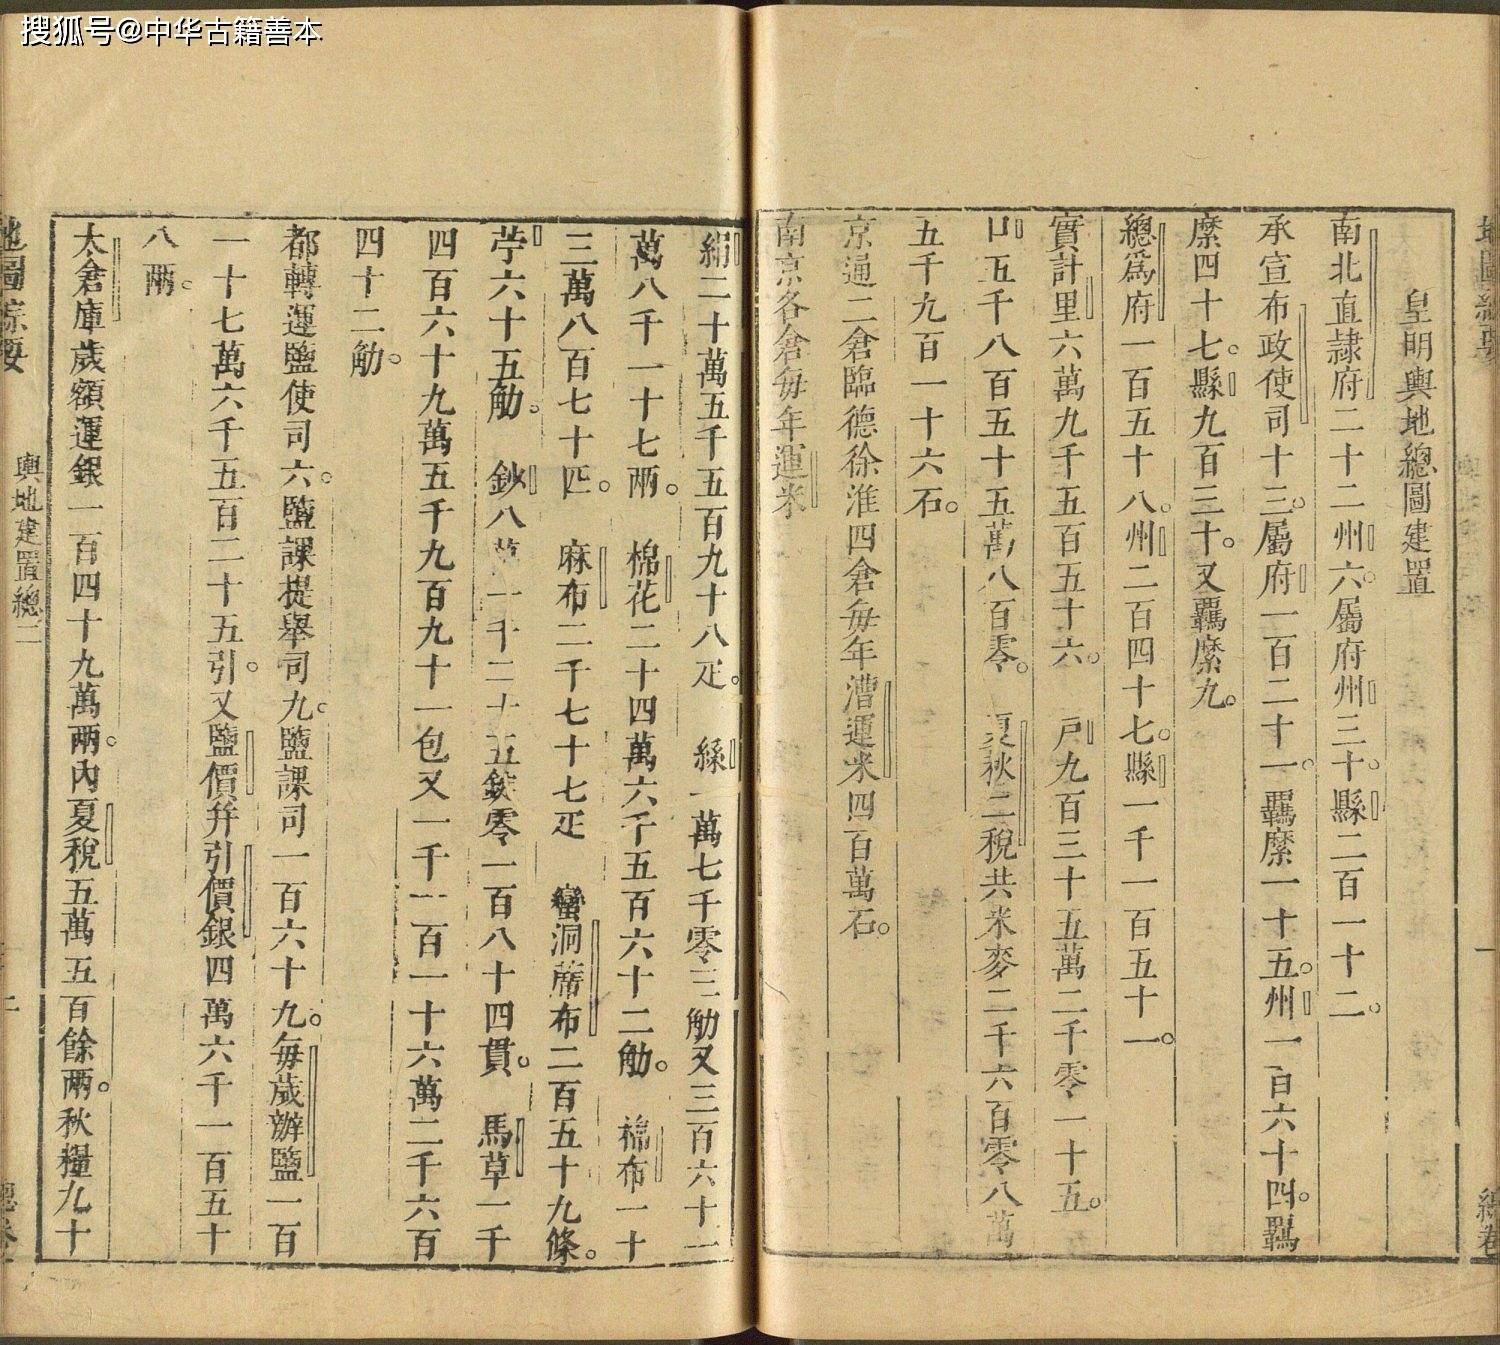 搜狐号@中华古籍善本
皇明輿地總圖建置
南北直隸府二十二州六屬府州三十縣二百一十二
承宣布政使司十三屬府一百二十一羈縻一十五州一百六十四羈
縻四十七縣九百三十又羈縻九
總爲府一百五十八州二百四十七縣一千一百五十一
實計里六萬九千五百五十六 戸九百三十五萬二千零一十五
口五千八百五十五萬八百零 夏秋二稅共米麥二千六百零八萬
五千九百一十六石
京通二倉臨德徐淮四倉每年漕運米四百萬石
南京各倉每年運米
絹二十萬五千五百九十八疋 絲一萬七千零三觔又三百六十一
萬八千一十七兩 棉花二十四萬六千五百六十二觔 棉布一十
三萬八百七十匹 麻布二千七十七疋 蠻洞蓆布二百五十九條
苧六十五觔 鈔八萬一千二十五錠零一百八十四貫 馬草一千
四百六十九萬五千九百九十一包又一千二百一十六萬二千六百
四十二觔
都轉運鹽使司六鹽課提舉司九鹽課司一百六十九每歲辦鹽一百
一十七萬六千五百二十五引又鹽價并引價銀四萬六千一百五十
八兩
太倉庫歲額運銀一百四十九萬兩內夏稅五萬五百餘兩秋糧九十
地圖綜要
輿地建置總二
二
總卷
一
總卷